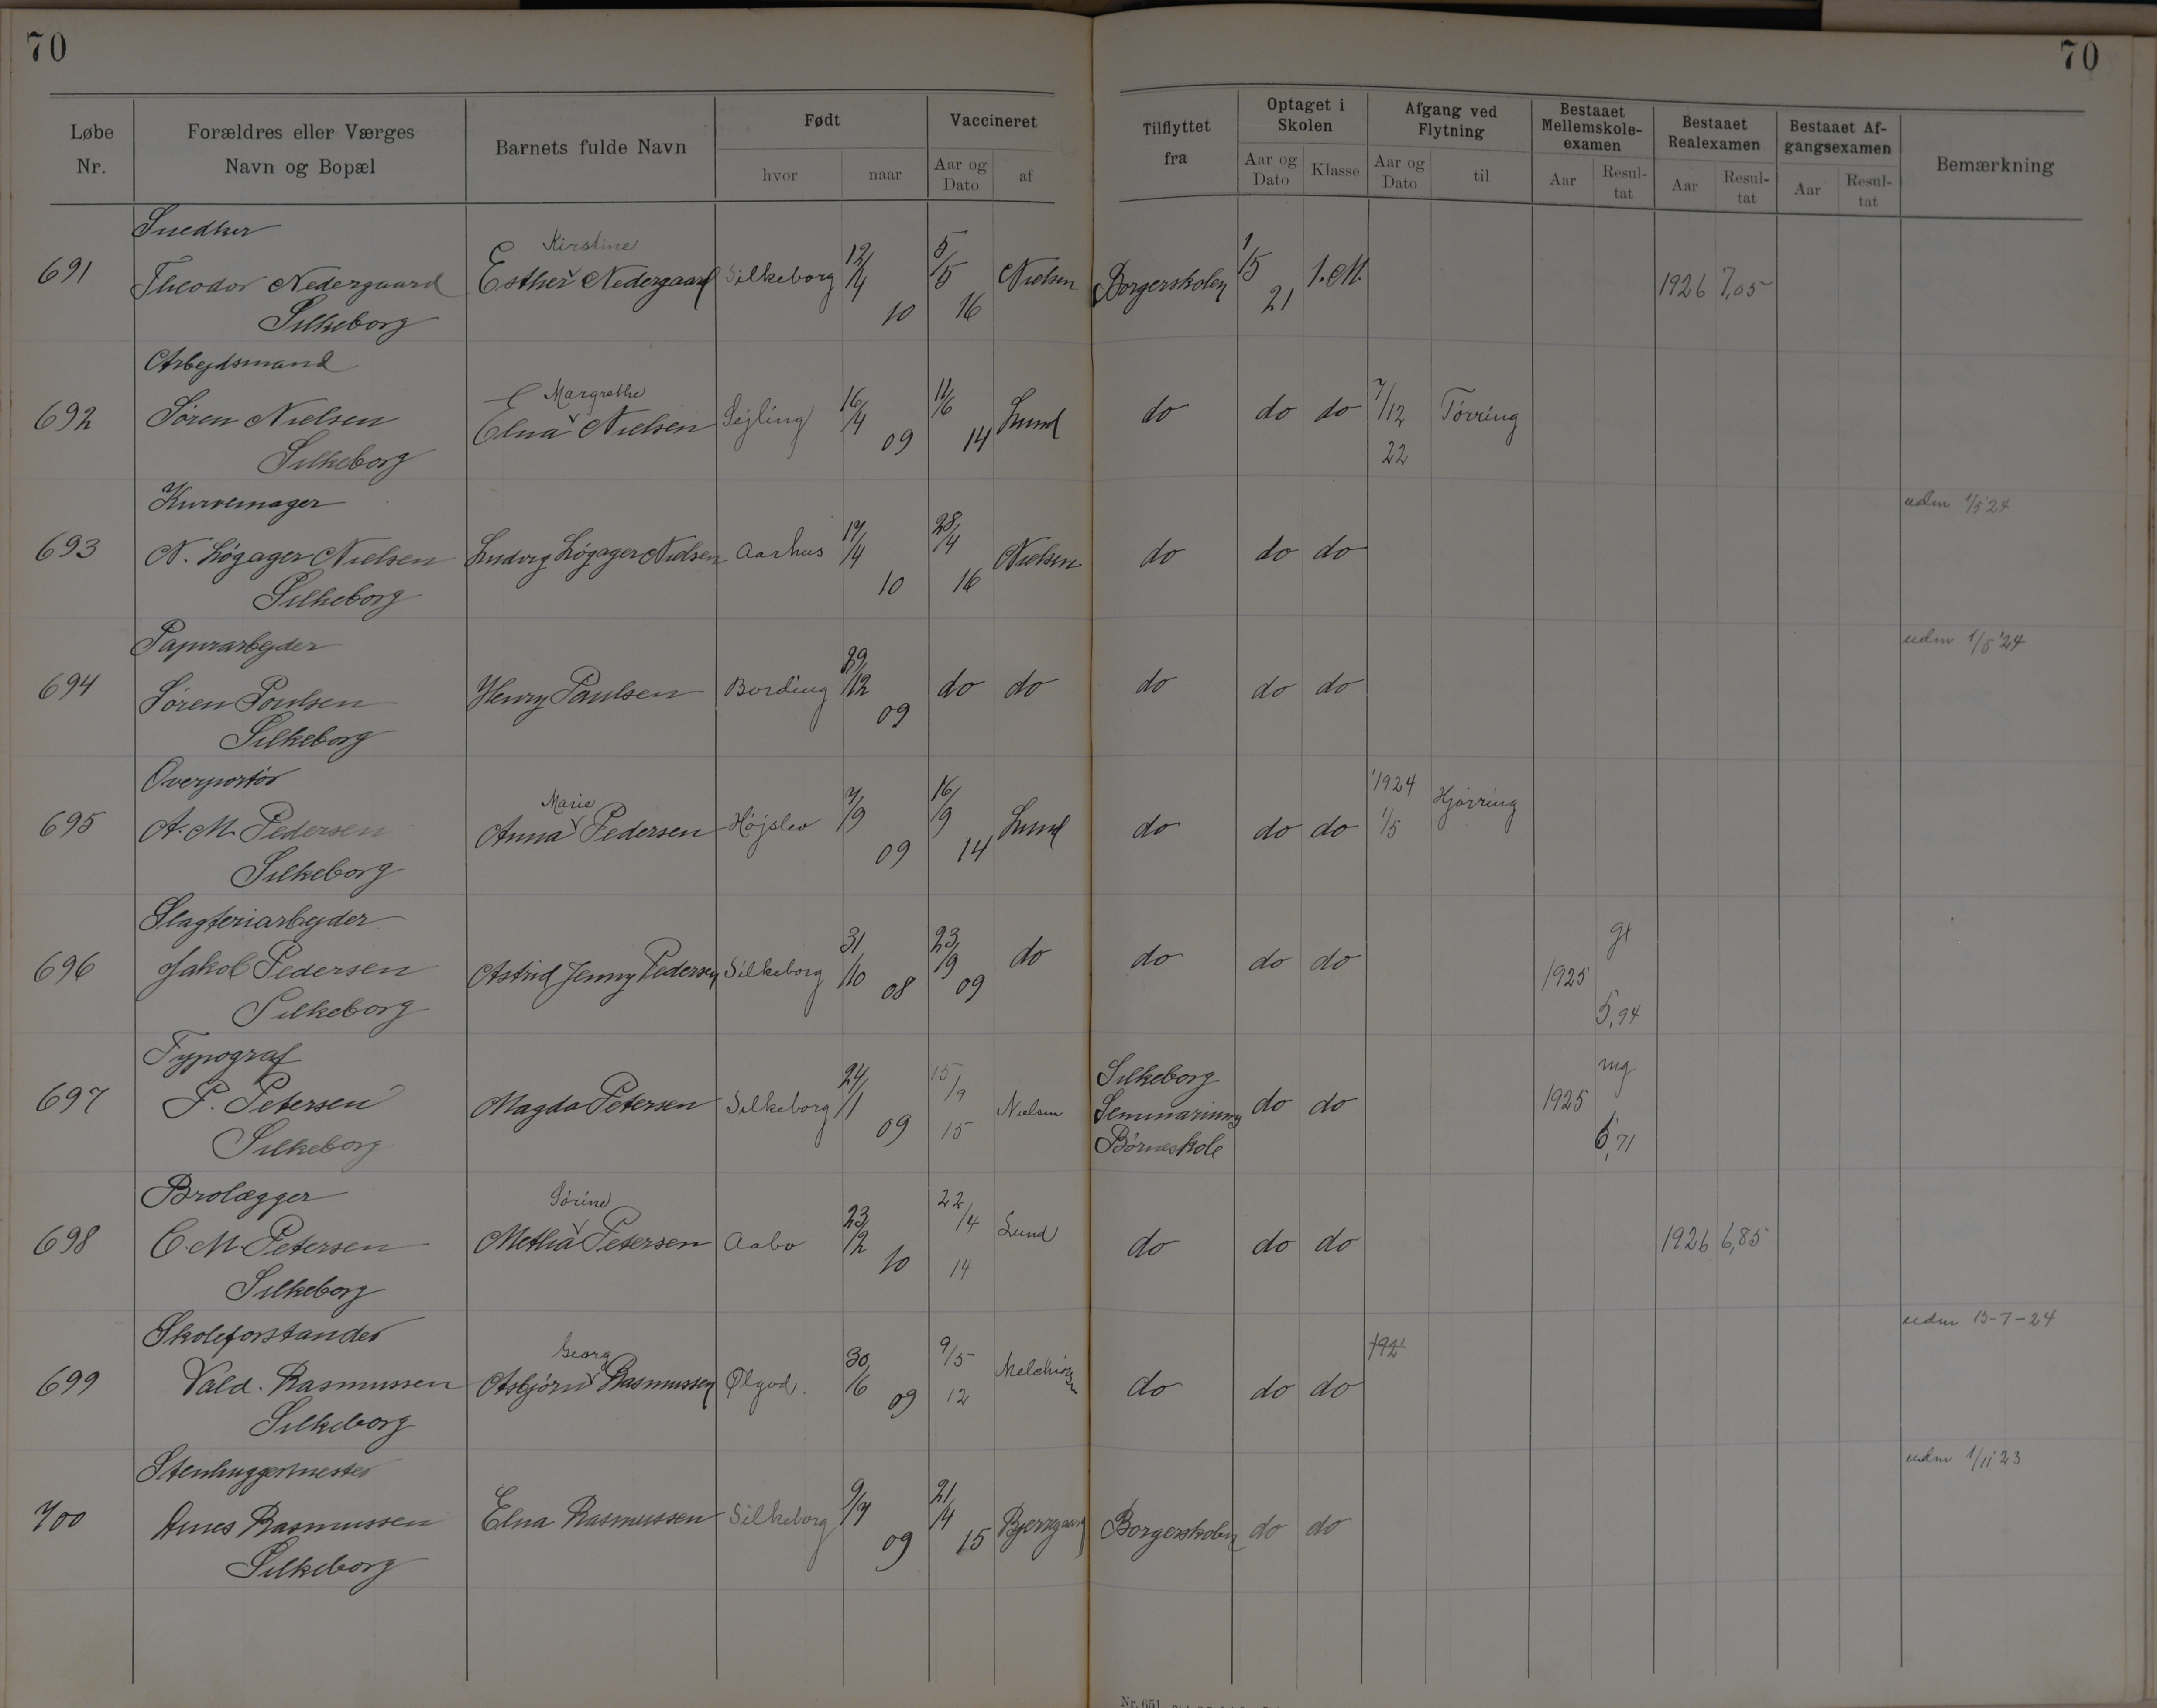 70
70
Løbe Nr.
Forældres eller Værges Navn og Bopæl
Barnets fulde Navn
Født
hvor
naar
Vaccineret
Aar og Dato
af
Tilflyttet fra
Optaget i Skolen
Aar og Dato
Klasse
Afgang ved Flytning
Aar og Dato
til
Bestaaet Mellemskole-examen
Aar
Resul-tat
Bestaaet Realexamen
Aar
Resul-tat
Bestaaet Af-gangsexamen
Aar
Resul-tat
Bemærkning
Snedker
Kirstine
691 Theodor Nedergaard Esther Nedergaard Silkeborg 12/4 10 5/5 16 Nielsen Borgerskolen 1/5 21 1. M. 1926 7,05
Silkeborg
Arbejdsmand
Margrethe
692 Søren Nielsen Elna Nielsen Sejling 16/4 09 11/6 14 Lund do do do 7/12 22 Tørring
Silkeborg
Kurvemager
udm 1/5 24
693 N. Løgager Nielsen Ludvig Løgager Nielsen Aarhus 17/4 10 28/4 16 Nielsen do do do
Silkeborg
Papirarbejder
udm 1/5 '24
694 Søren Poulsen Henry Paulsen Bording 29/12 09 do do do do do
Silkeborg
Overportør
Marie
695 A. M. Pedersen Anna Pedersen Højslev 7/9 09 16/9 14 Lund do do do 1924 1/5 Hjørring
Silkeborg
Slagteriarbejder
696 Jakob Pedersen Astrid Jenny Pedersen Silkeborg 31/10 08 23/9 09 do do do do 1925 g+ 5,94
Silkeborg
Typograf
697 P. Petersen Magda Petersen Silkeborg 24/1 09 15/9 15 Nielsen Silkeborg Seminariums Børneskole do do 1925 mg 6,71
Silkeborg
Brolægger
Sørine
698 C. M. Petersen Metha Petersen Aabo 23/2 10 22/4 14 Lund do do do 1926 6,85
Silkeborg
Skoleforstander
Georg
udm 13-7-24
699 Vald. Rasmussen Asbjørn Rasmussen Ølgod. 30/6 09 9/5 12 do do do
Silkeborg
Stenhuggermester
udm 1/11 23
700 Rasmussen Elna Rasmussen Silkeborg 9/7 09 21/4 15 Bjerregaard Borgerskolen do do
Silkeborg
Nr. 651